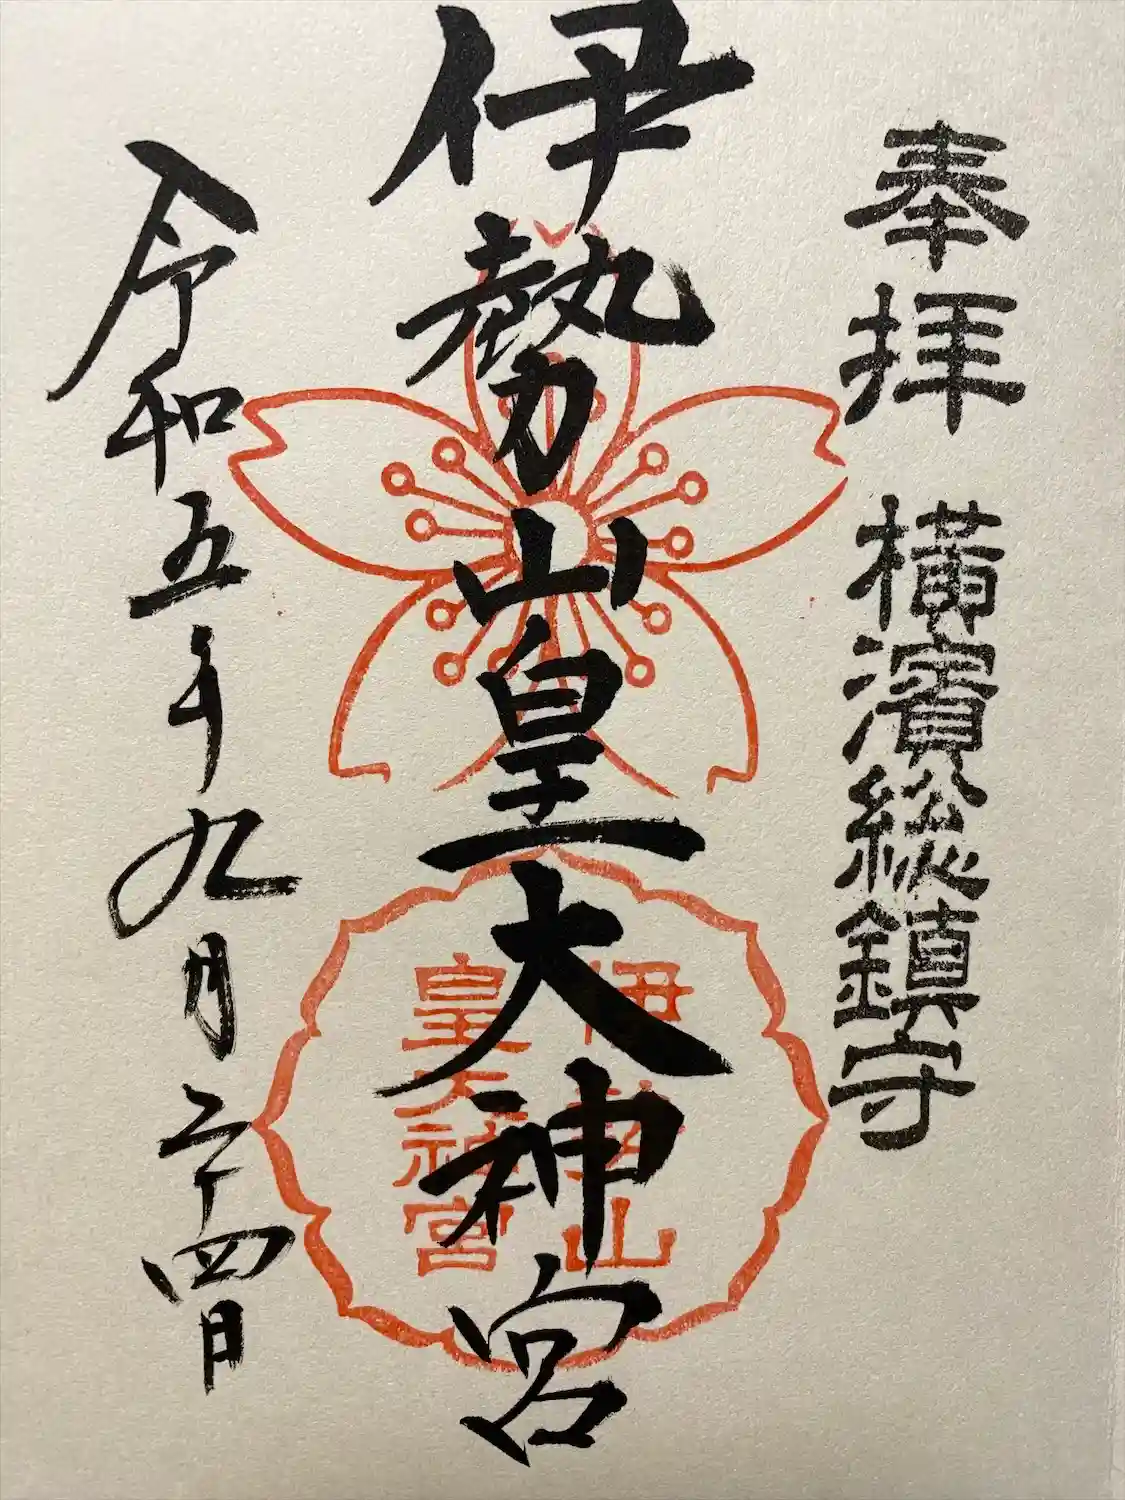 奉拝 横濱総鎮守
伊勢山皇大神宮
伊勢山
皇大神宮
令和五年九月二十四日